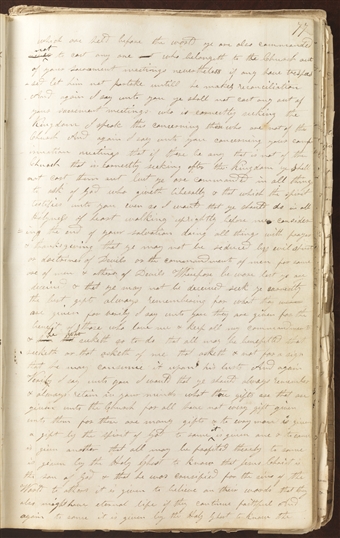 77
which are held before the world ye are also commanded
not to cast any one who belongeth to the Church out
of your sacrament meetings nevertheless if any have tresspas
let him not partake untill he makes reconciliation
And again I say unto you ye shall not cast any out of
your sacrament meetings who is earnestly seeking the
Kingdom I speak this concerning those who are not of the
Church And again I say unto you concerning your conf
irmation meetings that if there be any that is not of the
Church that is earnestly seeking after the Kingdom ye shall
not cast them out but ye are commanded in all things
to ask of God who giveth liberally & that which the spirit
testifies unto you even so I would that ye should do in all
holyness of heart walking uprightly before me consider
ing the end of your salvation doing all things with prayer
& thanksgiving that ye may not be seduced by evil spirits
or doctrines of Devils or the commandments of men for some
are of men & others of Devils Wherefore be ware lest ye are
deceived & that ye may not be deceived seek ye earnestly
the best gifts always remembering for what they
are given for verily I say unto you they are given for the
benefit of those who love me & keep all my commandments
& him that seeketh so to do that all may be benefited that
seeketh or that asketh of me that asketh & not for a sign
that he may consume it upon his lusts And again
Verily I say unto you I would that ye should always remember
& always retain in your minds what those gifts are that are
given unto the Church for all have not every gift given
unto them for there are many gifts & to every man is given
a gift by the spirit of God to some it is given one & to some
is given another that all may be profited thereby to some
is given by the Holy Ghost to know that Jesus Christ is
the son of God & that he was crucified for the sins of the
World to others it is given to believe on their words that they
also might have eternal life if they continue faithful And
again to some it is given by the Holy Ghost to know the